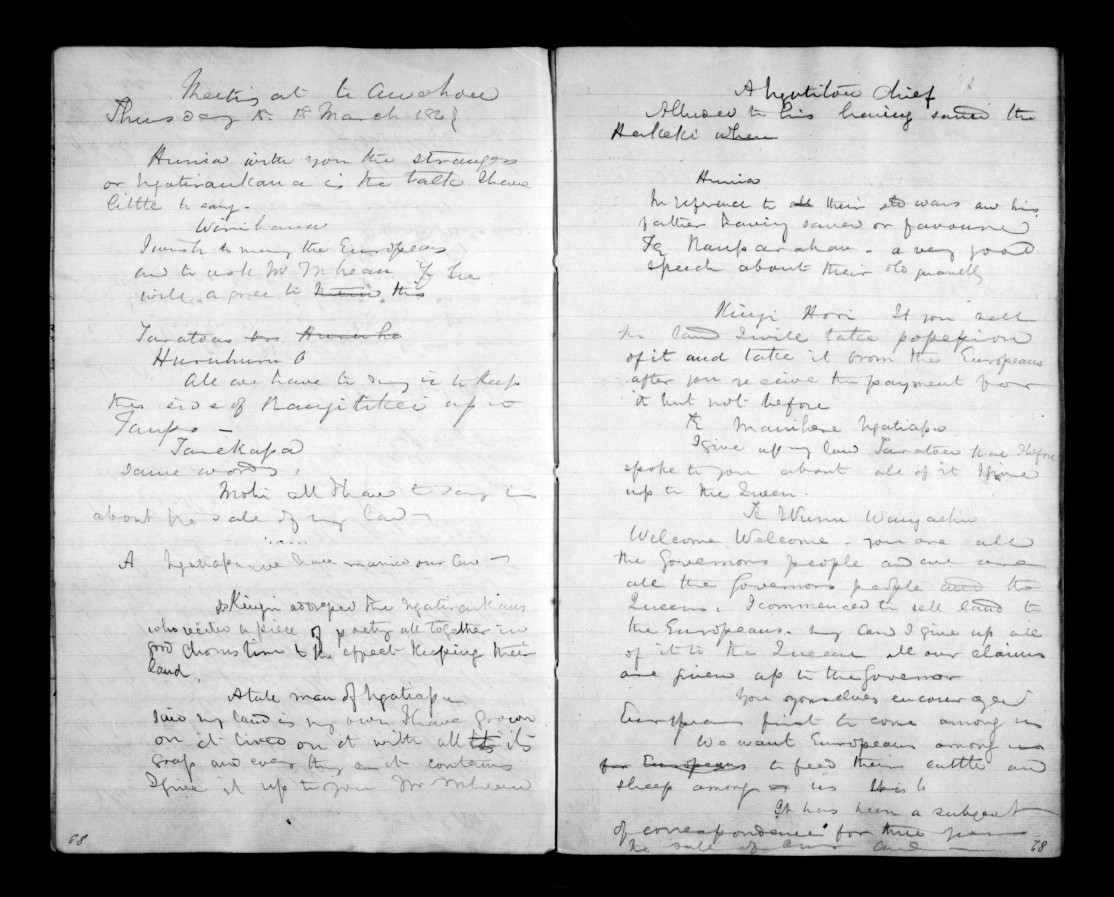 Meeting at te Awahou
Thursday 15. 18 March 184
Hunia with you the strangers
or Ngatiraukaua is the talk I have
little to say.
Wirihana
I wish to marry the Europeans
and to ask Mr McLean if he
will agree to this
Taratoas
Huruhuru
All we have to say is to keep
this side of Rangitikei up to
Taupo –
Tanekapa
same words,
Mohi all I have to say is
about the sale of my land
A Ngatiapa we have married our land
Kingi addressed the Ngatiraukaua
who recited a piece of poetry all together in
good chorus time to the effect keeping their
land,
A tall man of Ngatiapa
said my land is my own I have grown
on it lived on it with all its its
grass and every thing on it contains
I give it up to you Mr McLean
68
A Ngatitoa chief
Alluded to his having saved the
Hakeki when
Hunia
In reference to all their old wars and his
father having saved or favoured
Te Rauparahau – a very good
speech about their old quarrels
Kingi Hori If you sell
the land I will take possession
of it and take it from the Europeans
after you receive the payment for
it but not before
Te Ngatiapa
I give up my land Taratoa that I before
spoke to you about all of it I give
up to the Queen.
Te Wunu
Welcome Welcome – you are all
the Governors people and we are
all the Governors people and the
Queens. I commenced to sell land to
the Europeans. my land I give up all
of it to the Queen all our claims
are given up to the Governor
You yourselves encouraged
Europeans first to come among us
We want Europeans among us
for Europeans to feed their cattle and
sheep among us this is
It has been a subject
of correspondence for three years
the sale of our land
68